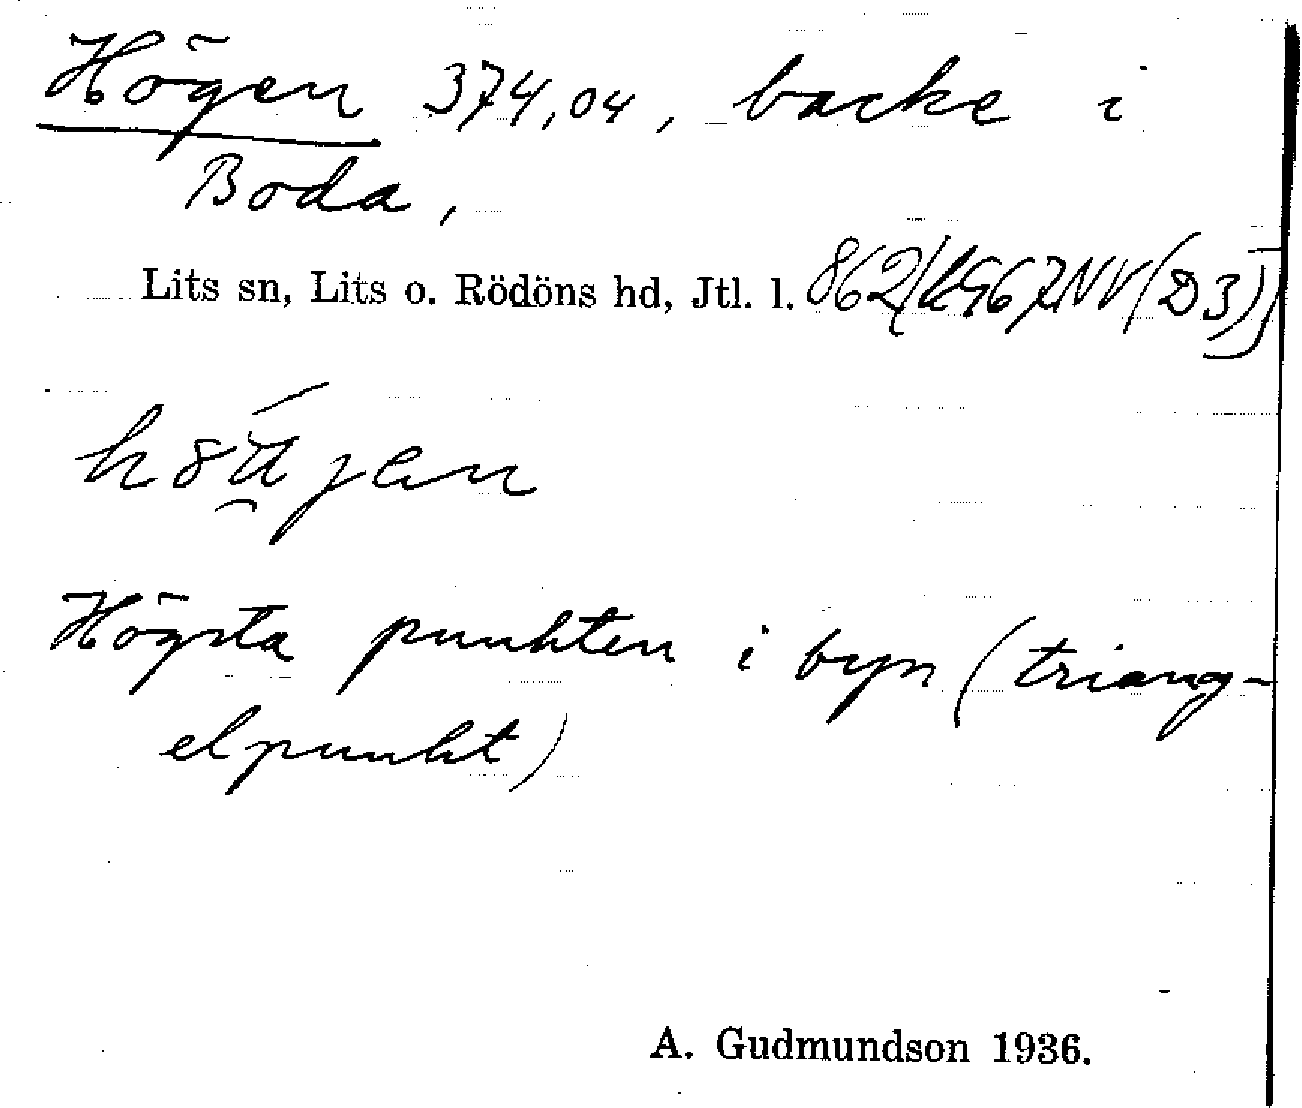 Högen 374,04, backe i
Boda,
Lits sn, Lits o. Rödöns hd, Jtl. l. 862
Högsta punkten i byn (triang-
elpunkt)
A. Gudmundson 1936.